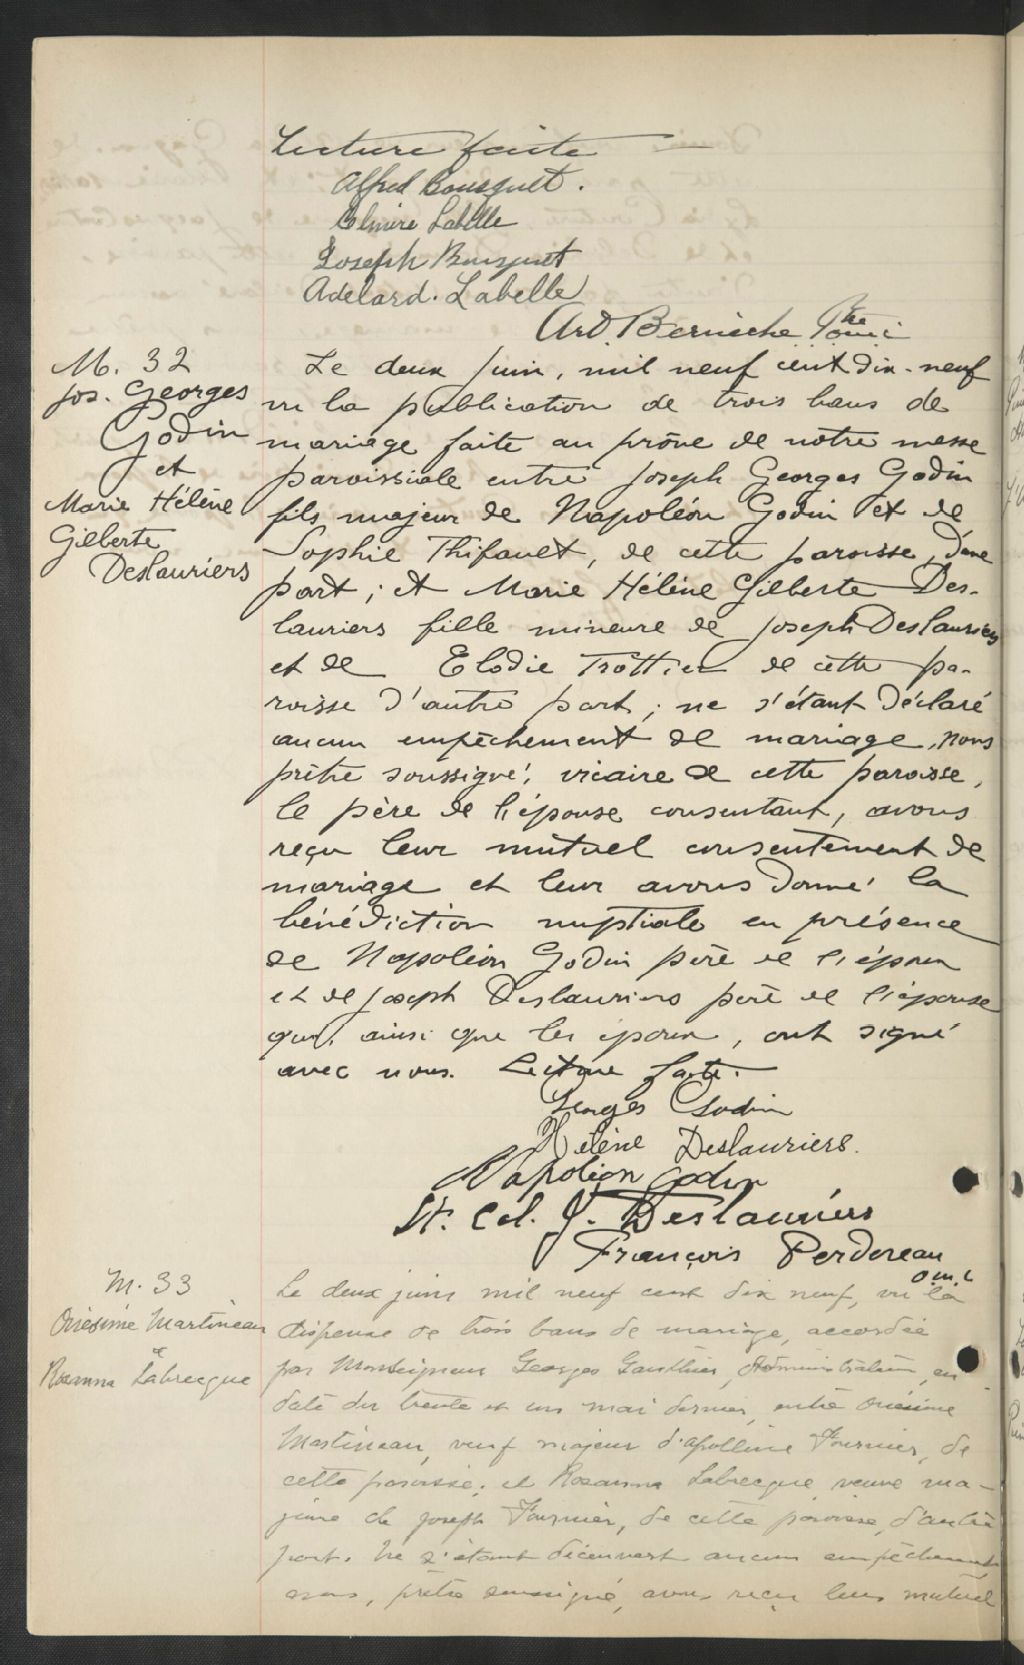 Lecture faite
Alfred Bousquet.
Elmire Labelle
Joseph Bousquet
Adelard. Labelle
Ard. Berniche Ptre
M. 32
Jos. Georges
Godin
et
Marie Hélène
Gilberte
Deslauriers
Le deux juin, mil neuf cent dix-neuf
vu la publication de trois bans de
mariage faite au prône de notre messe
paroissiale entre Joseph Georges Godin
fils majeur de Napoléon Godin et de
Sophie Thifault, de cette paroisse, d'une
part; et Marie Hélène Gilberte Des-
lauriers fille mineure de Joseph Deslauriers
et de Elodie Trottier de cette pa-
roisse d'autre part; ne s'étant déclaré
aucun empêchement de mariage, nous
prêtre soussigné, vicaire de cette paroisse,
le père de l'épouse consentant, avons
reçu leur mutuel consentement de
mariage et leur avons donné la
bénédiction nuptiale en présence
de Napoléon Godin père de l'époux
et de Joseph Deslauriers père de l'épouse
qui, ainsi que les époux, ont signé
avec nous. Lecture faite.
Georges Godin
Hélène Deslauriers.
Napoléon Godin
Lt. Col. J. Deslauriers
François Perdereau
o.m.i.
M. 33
Onésime Martineau
&
Rosanna Labrecque
Le deux juin mil neuf cent dix neuf, vu la
dispense de trois bans de mariage, accordée
par Monseigneur Georges Gauthier, Administrateur, en
date du trente et un mai dernier, entre Onésime
Martineau, veuf majeur d'Apolline Fournier, de
cette paroisse; et Rosanna Labrecque, veuve ma-
jeure de Joseph Fournier, de cette paroisse, d'autre
part. Ne s'étant découvert aucun empêchement
nous, prêtre soussigné, avons reçu leur mutuel